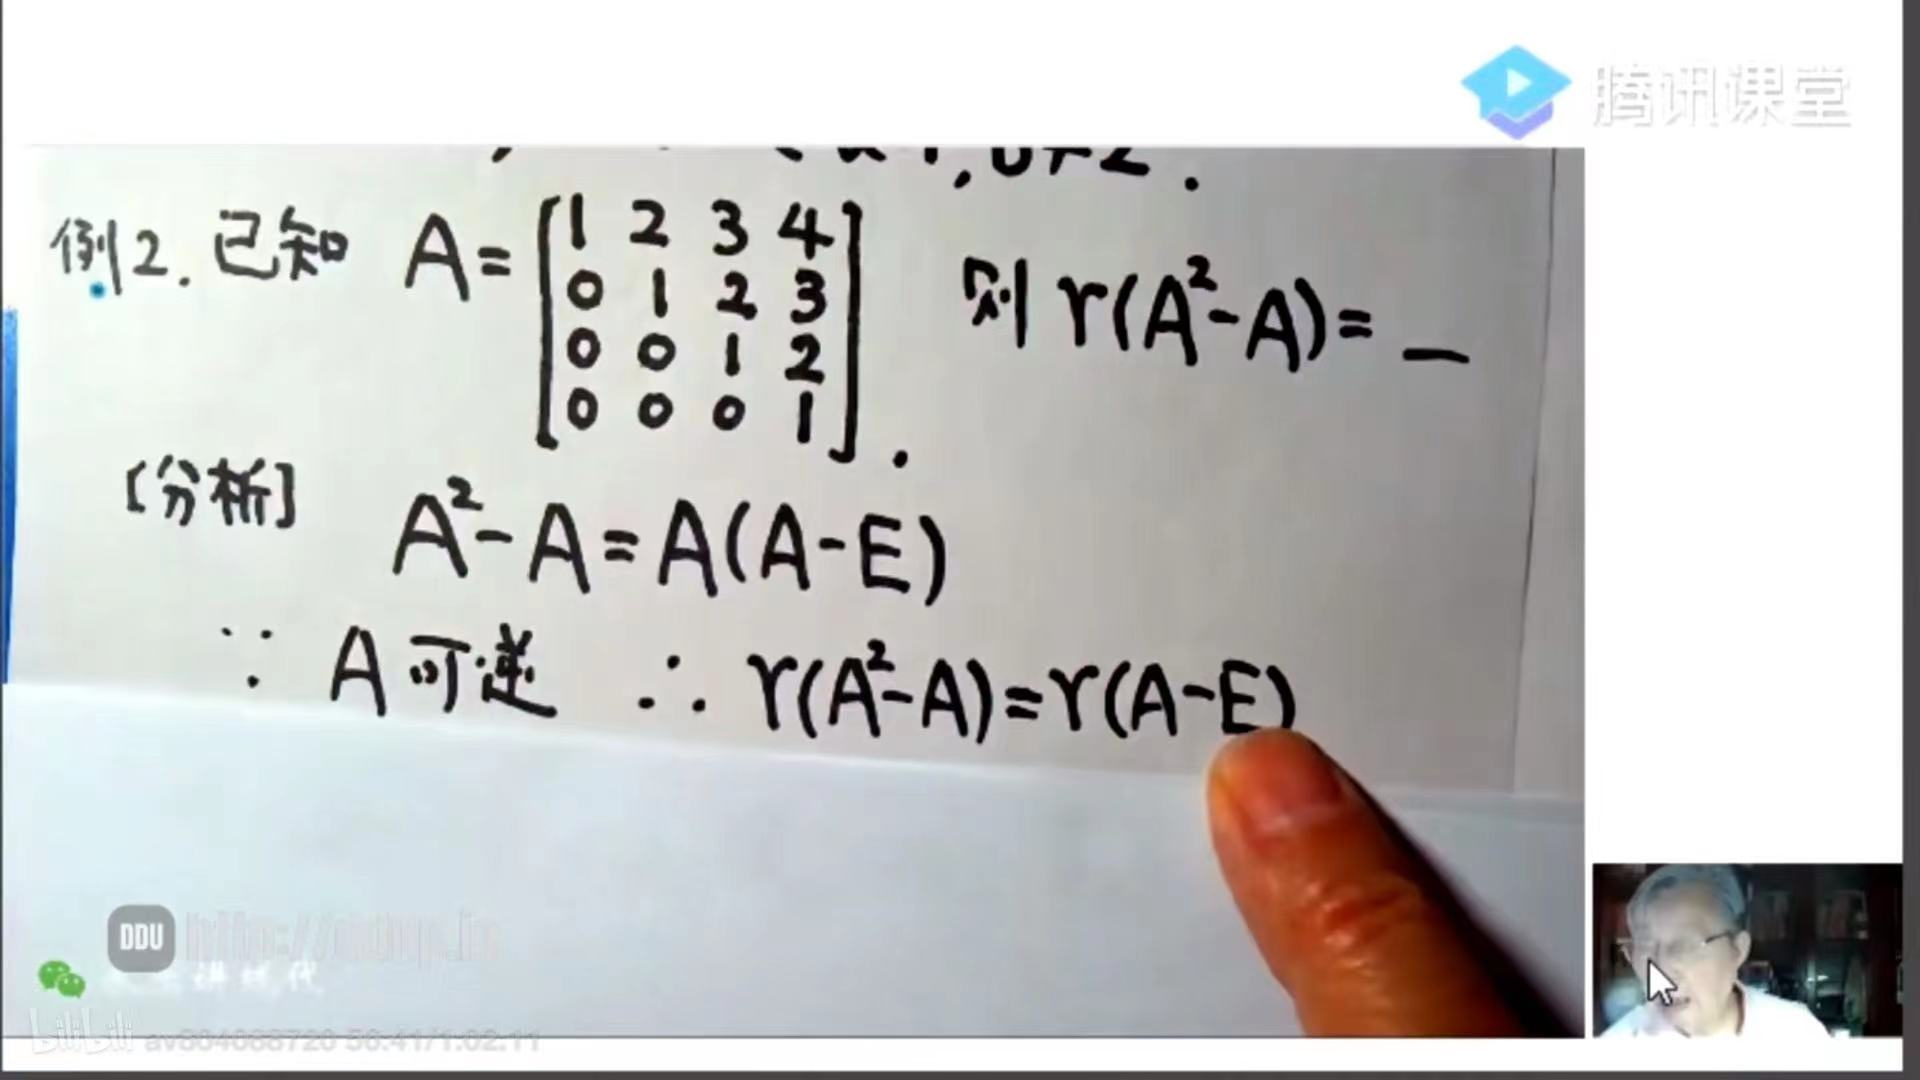 腾讯课堂
例2. 已知 A= [1 2 3 4
0 1 2 3
0 0 1 2
0 0 0 1]. 则 r(A²-A)= _
[分析] A²-A=A(A-E)
∵ A可逆 ∴ r(A²-A)=r(A-E)
DDU
讲线代
bilibili av804088720 56:41/1:02:11